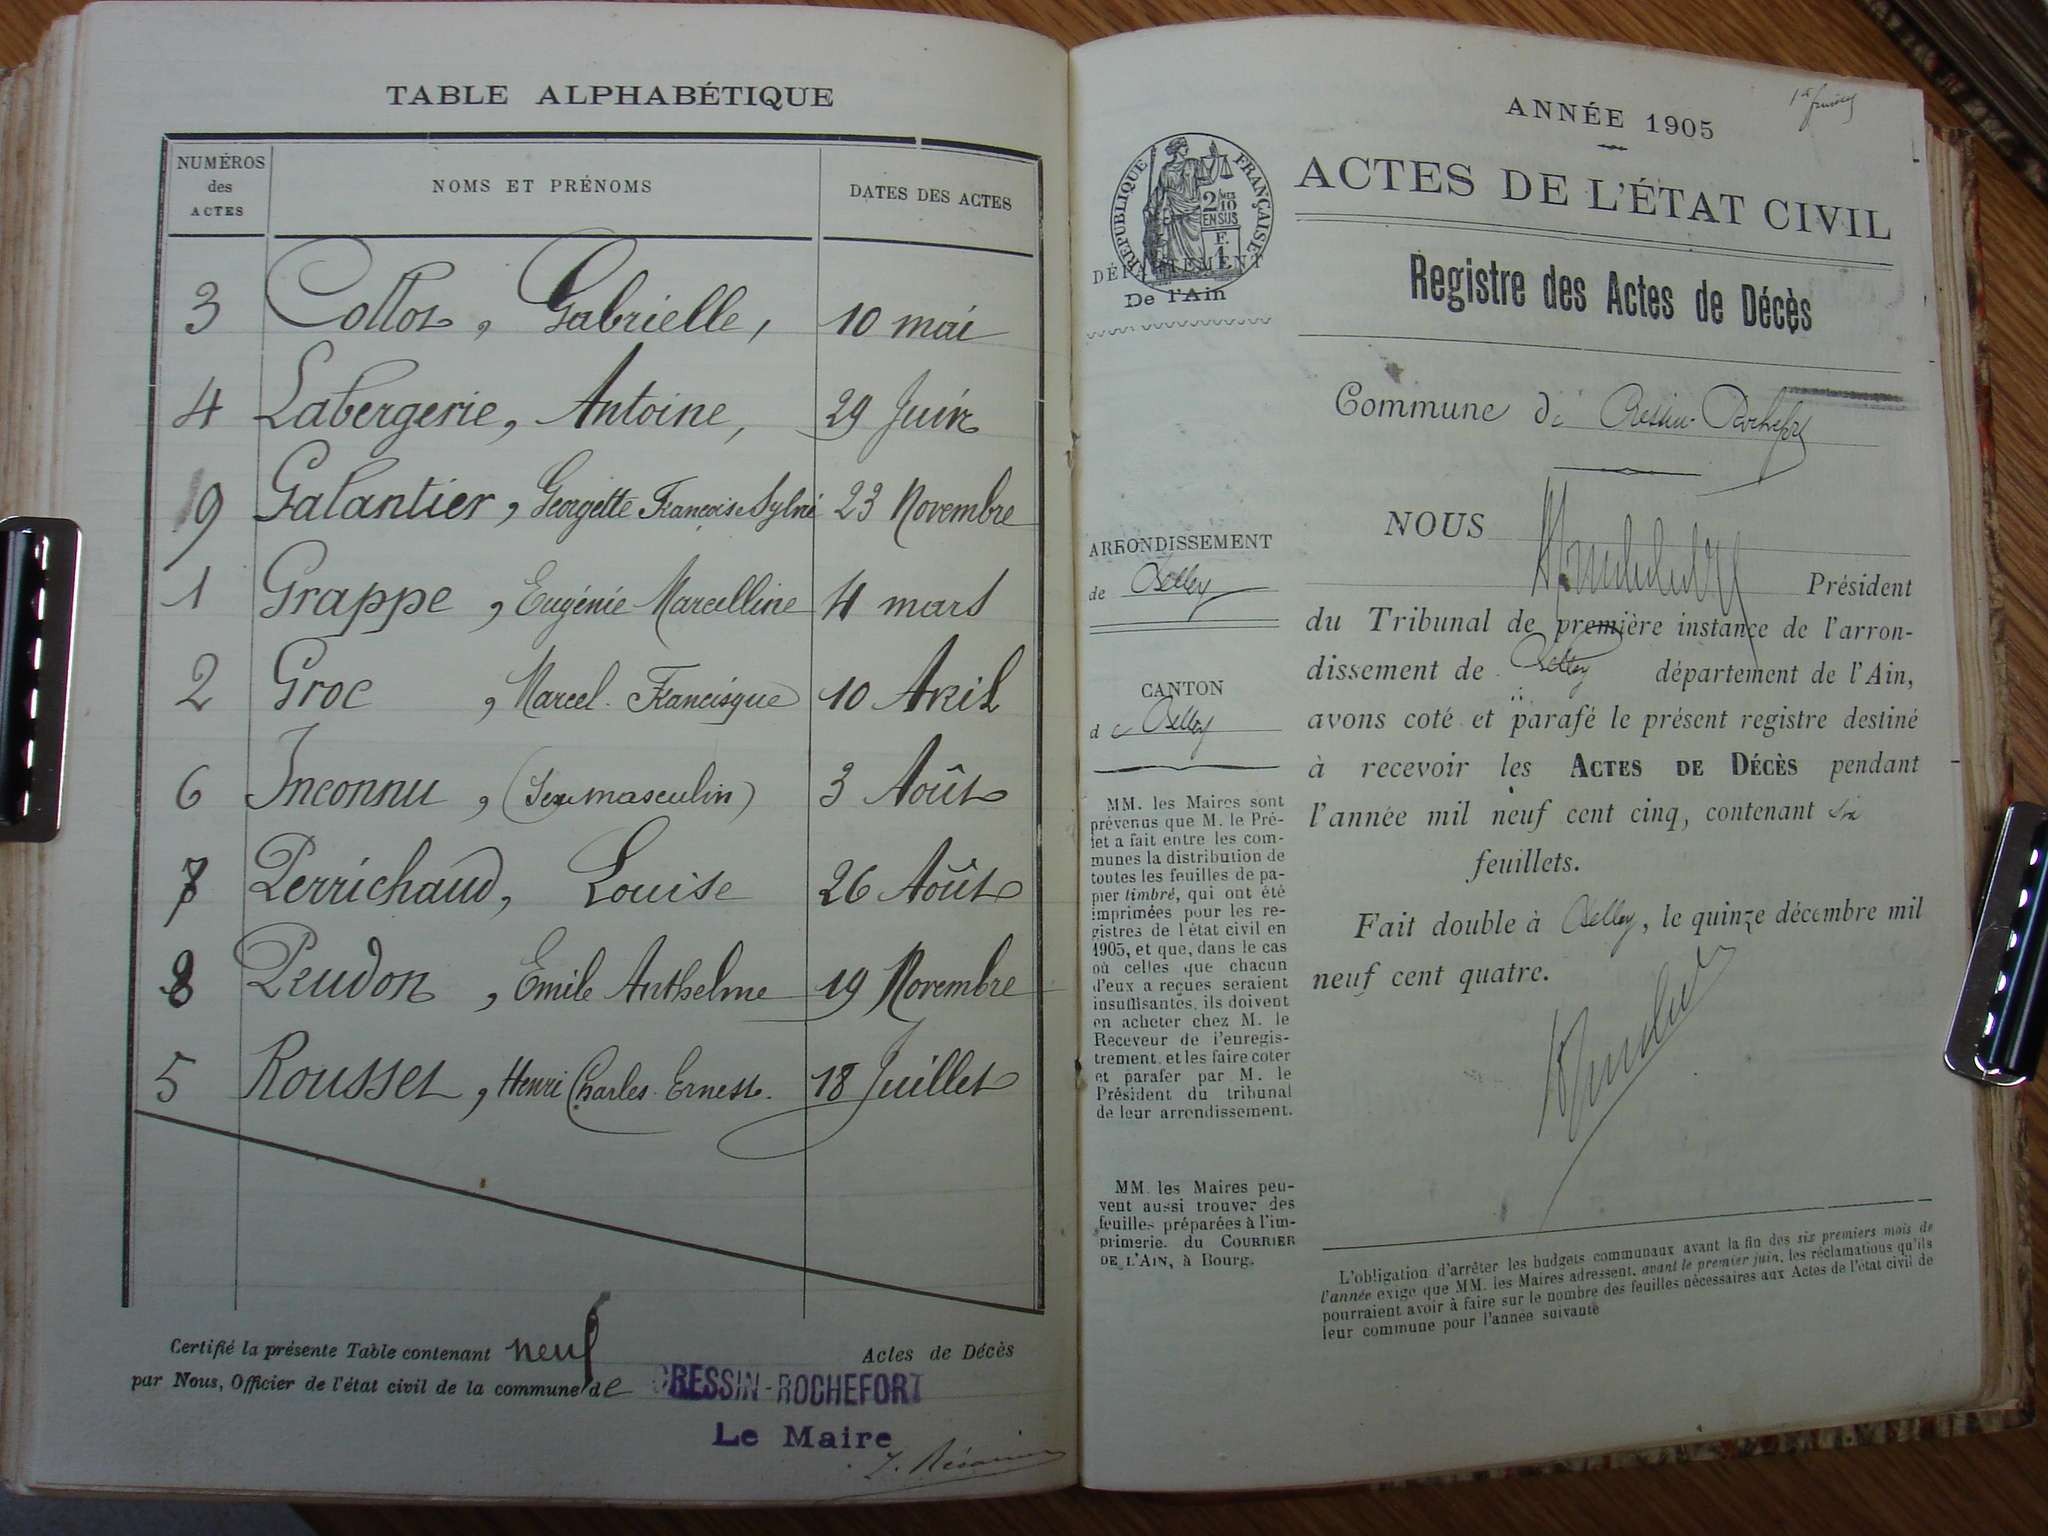 TABLE ALPHABÉTIQUE
NUMÉROS des ACTES NOMS ET PRÉNOMS DATES DES ACTES
3 Collot, Gabrielle, 10 mai
4 Labergerie, Antoine, 29 Juin
9 Galantier, Georgette Françoise Sylvie 23 Novembre
1 Grappe, Eugénie Marcelline 4 mars
2 Groc, Marcel Francisque 10 Avril
6 Inconnu, (Sexe masculin) 3 Août
7 Perrichaud, Louise 26 Août
8 Peudon, Emile Anthelme 19 Novembre
5 Rousset, Henri Charles Ernest. 18 Juillet
Certifié la présente Table contenant neuf Actes de Décès
par Nous, Officier de l'état civil de la commune de CRESSIN-ROCHEFORT
Le Maire
ANNÉE 1905
ACTES DE L'ÉTAT CIVIL
Registre des Actes de Décès
RÉPUBLIQUE FRANÇAISE
2/10 EN SUS
F. 1
DÉPARTEMENT
De l'Ain
Commune de Cressin-Rochefort
ARRONDISSEMENT
de Belley
CANTON
de Belley
MM. les Maires sont
prévenus que M. le Pré-
fet a fait entre les com-
munes la distribution de
toutes les feuilles de pa-
pier timbré, qui ont été
imprimées pour les re-
gistres de l'état civil en
1905, et que, dans le cas
où celles que chacun
d'eux a reçues seraient
insuffisantes, ils doivent
en acheter chez M. le
Receveur de l'enregis-
trement et les faire coter
et parafer par M. le
Président du tribunal
de leur arrondissement.
MM. les Maires peu-
vent aussi trouver des
feuilles préparées à l'im-
primerie du COURRIER
DE L'AIN, à Bourg.
NOUS
Président
du Tribunal de première instance de l'arron-
dissement de Belley département de l'Ain,
avons coté et parafé le présent registre destiné
à recevoir les ACTES DE DÉCÈS pendant
l'année mil neuf cent cinq, contenant six
feuillets.
Fait double à Belley, le quinze décembre mil
neuf cent quatre.
L'obligation d'arrêter les budgets communaux avant la fin des six premiers mois de
l'année exige que MM. les Maires adressent, avant le premier juin, les réclamations qu'ils
pourraient avoir à faire sur le nombre des feuilles nécessaires aux Actes de l'état civil de
leur commune pour l'année suivante